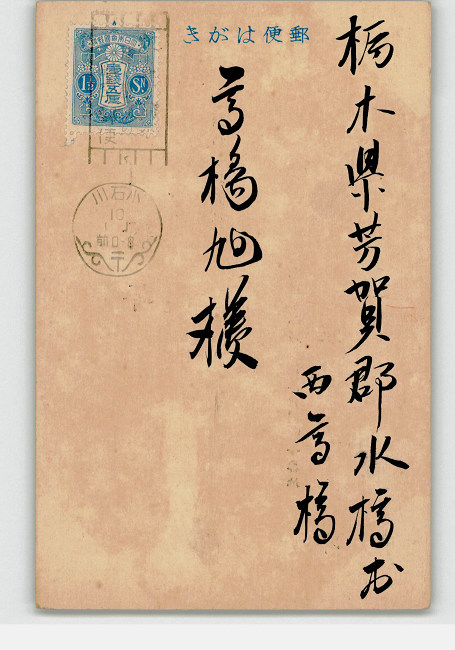 郵便はがき
栃木県芳賀郡水橋村
西高橋
高橋旭様
1½
SN
小石川
10
前0-8
便